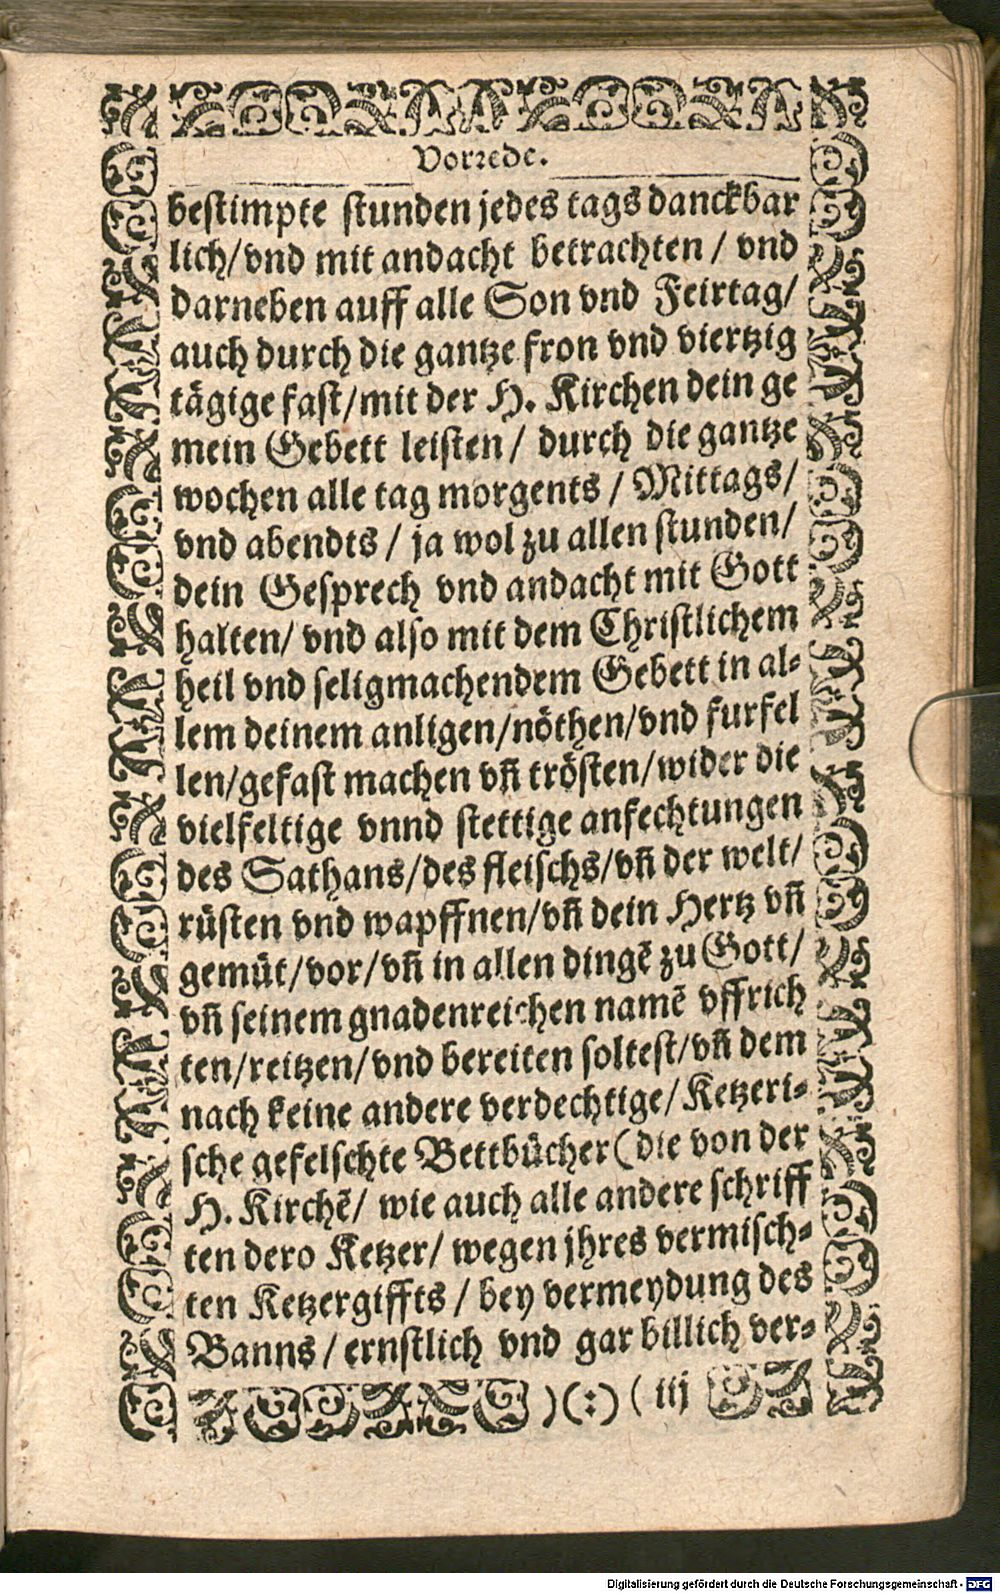 Vorrede.
bestimpte stunden jedes tags danckbar
lich/vnd mit andacht betrachten / vnd
darneben auff alle Son vnd Feirtag/
auch durch die gantze fron vnd viertzig
tägige fast/mit der H. Kirchen dein ge
mein Gebett leisten / durch die gantze
wochen alle tag morgents / Mittags/
vnd abendts / ja wol zu allen stunden/
dein Gesprech vnd andacht mit Gott
halten/ vnd also mit dem Christlichem
heil vnd seligmachendem Gebett in al-
lem deinem anligen/nöthen/vnd furfel
len/gefast machen vñ trösten/wider die
vielfeltige vnnd stettige anfechtungen
des Sathans/des fleischs/vñ der welt/
rüsten vnd wapffnen/vñ dein Hertz vñ
gemüt/vor/vñ in allen dingẽ zu Gott/
vñ seinem gnadenreichen namẽ vffrich
ten/reitzen/vnd bereiten soltest/vñ dem
nach keine andere verdechtige/Ketzeri-
sche gefelschte Bettbücher(die von der
H. Kirchẽ/ wie auch alle andere schriff
ten dero Ketzer/ wegen jhres vermisch-
ten Ketzergiffts / bey vermeydung des
Banns / ernstlich vnd gar billich ver-
)(:)( iij
Digitalisierung gefördert durch die Deutsche Forschungsgemeinschaft - DFG